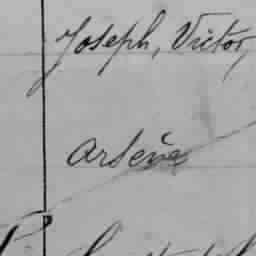 Joseph, Victor,
Arsène